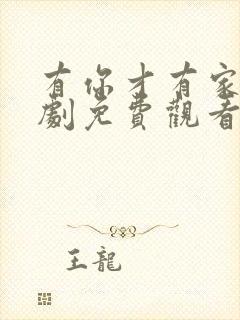 有你才有家
劇免費觀看
王龍